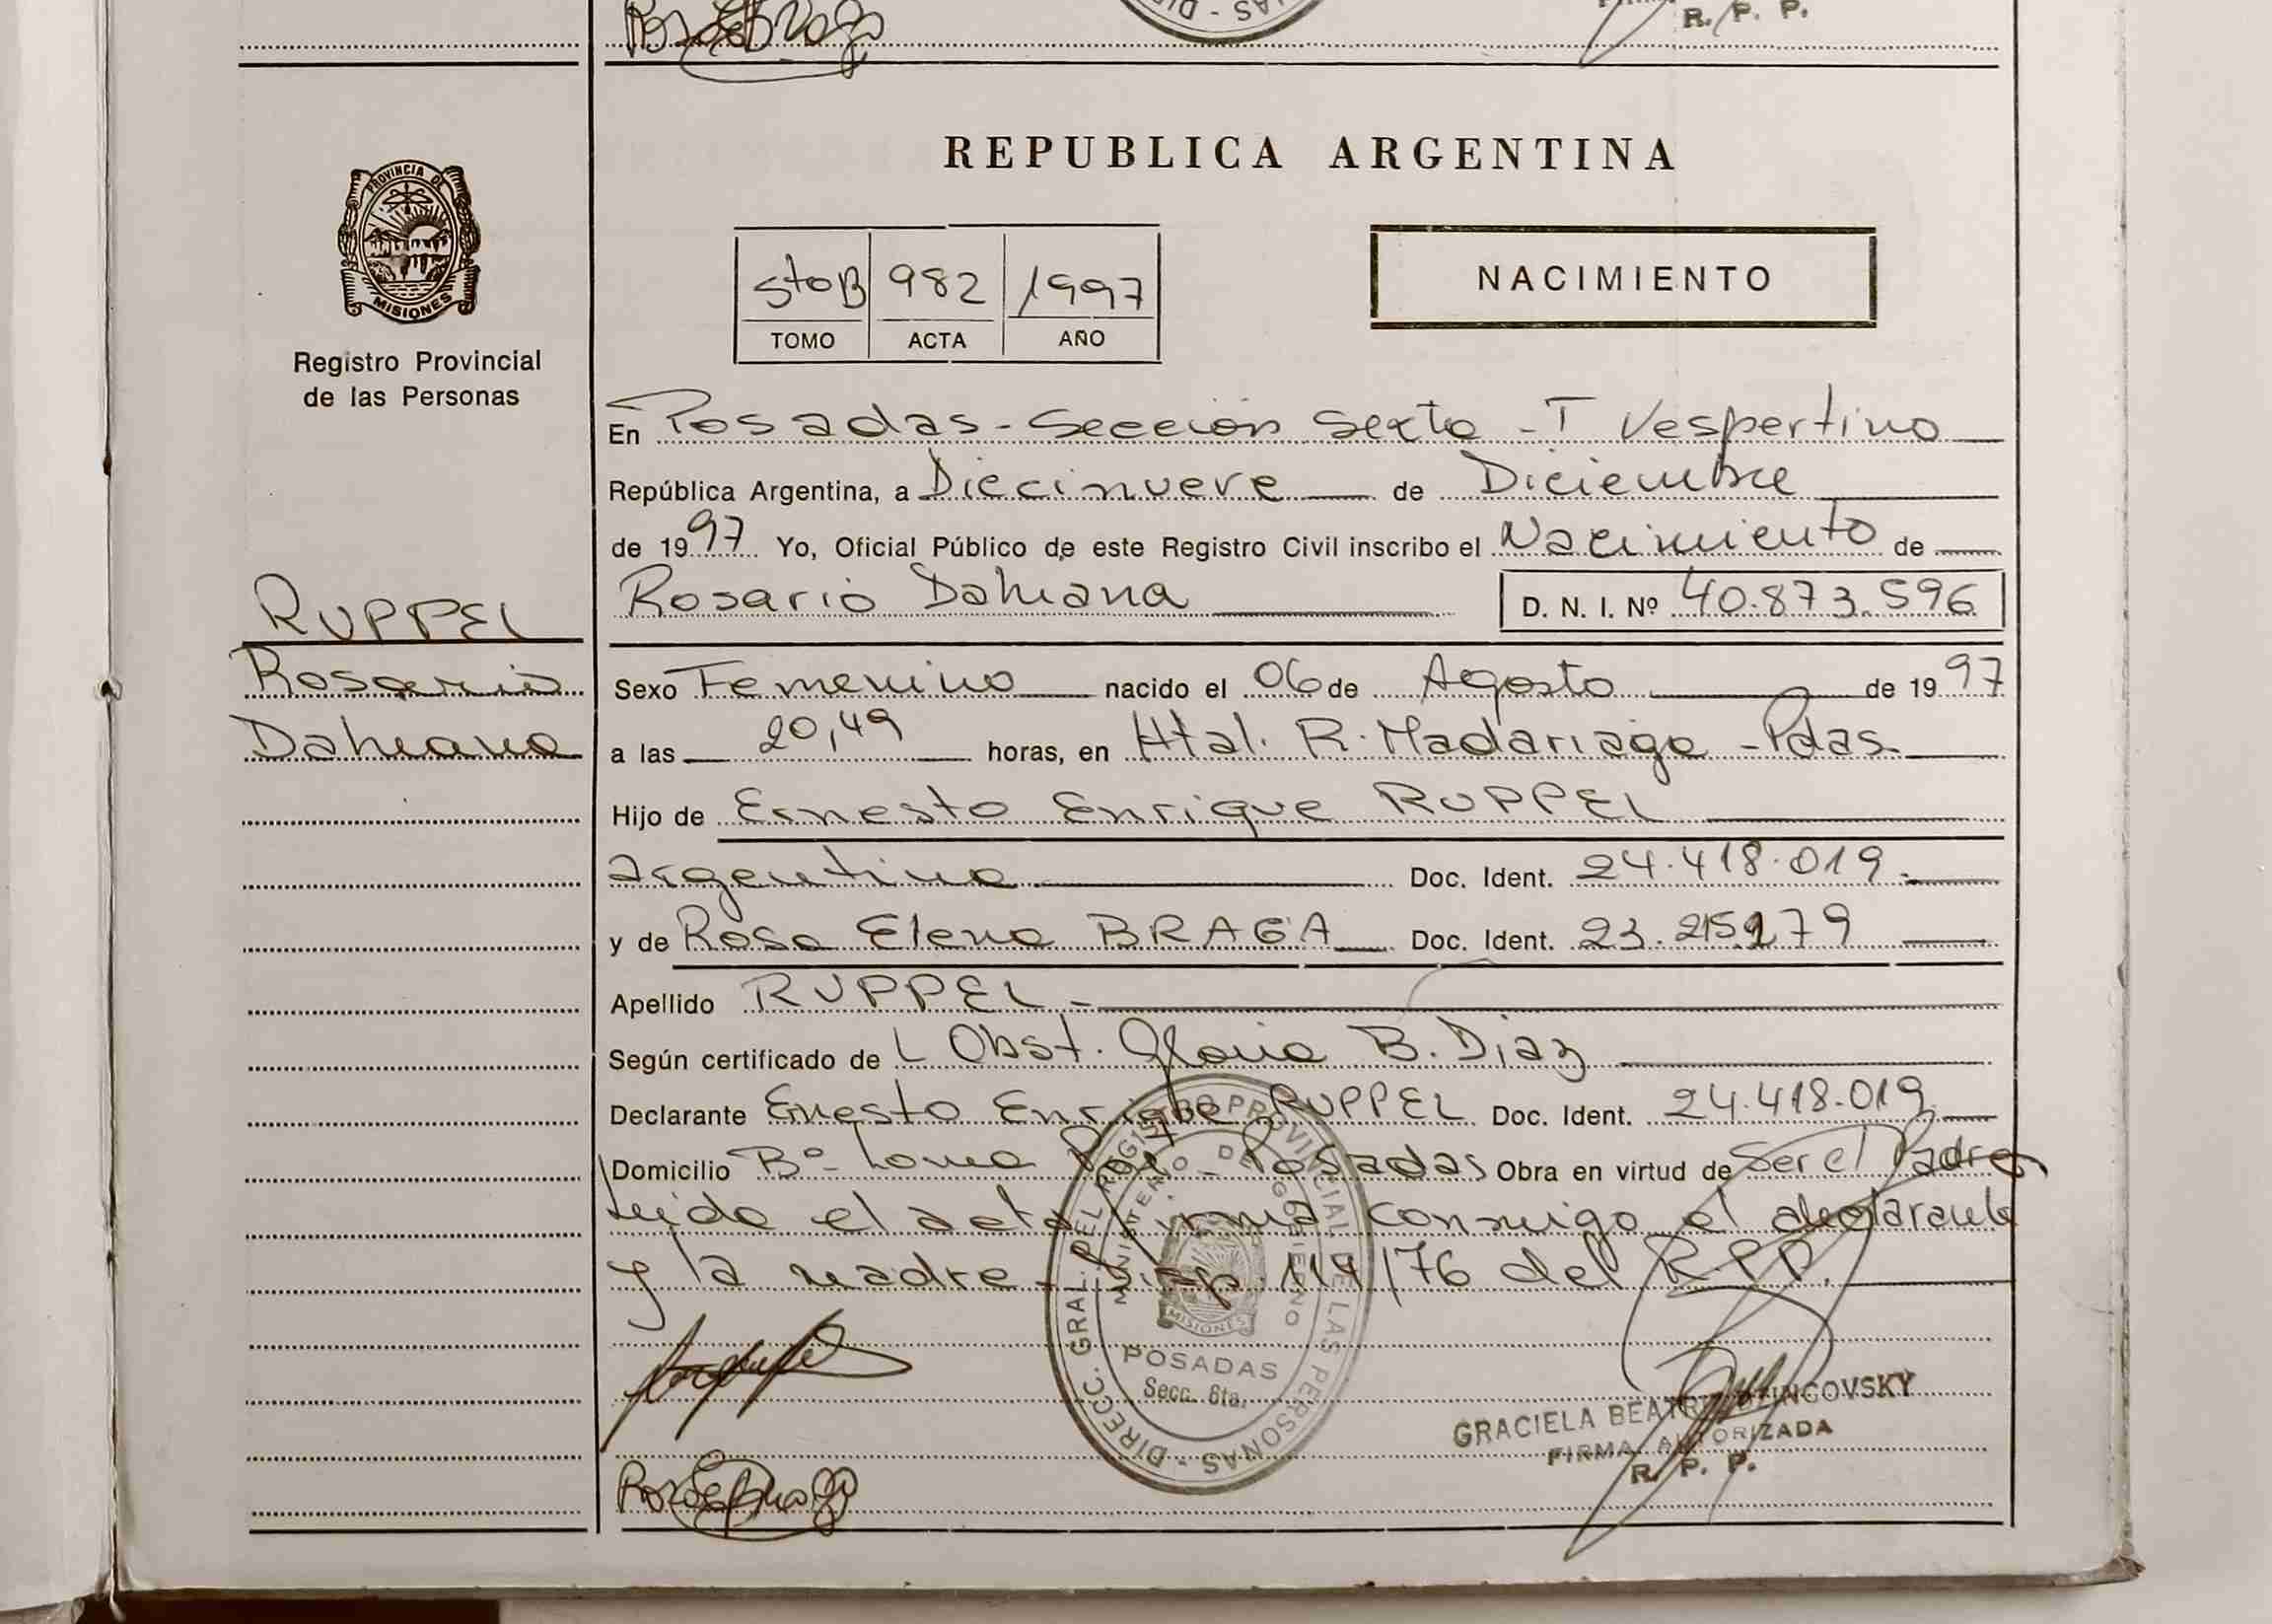 R. P. P.
REPUBLICA ARGENTINA
PROVINCIA DE
MISIONES
Registro Provincial
de las Personas
5to B 982 1997
TOMO ACTA AÑO
NACIMIENTO
En Posadas - Sección Sexta - T Vespertino
República Argentina, a Diecinueve de Diciembre
de 1997 Yo, Oficial Público de este Registro Civil inscribo el Nacimiento de
Rosario Dahiana D. N. I. Nº 40.873.596
RUPPEL
Rosario
Dahiana
Sexo Femenino nacido el 06 de Agosto de 1997
a las 20,49 horas, en Htal. R. Madariaga - Pdas.
Hijo de Ernesto Enrique RUPPEL
argentino Doc. Ident. 24.418.019.
y de Rosa Elena BRAGA Doc. Ident. 23.215.279
Apellido RUPPEL -
Según certificado de L Obst. Gloria B. Diaz
Declarante Ernesto Enrique RUPPEL Doc. Ident. 24.418.019
Domicilio Bº Loma - Posadas Obra en virtud de Ser el Padre
Leida el acta firma conmigo el declarante
y la madre - Disp. 119/76 del R.P.P.
DIRECC. GRAL. DEL REGISTRO PROVINCIAL DE LAS PERSONAS
MINISTERIO DE GOBIERNO
MISIONES
POSADAS
Secc. 6ta.
GRACIELA BEATRIZ
FIRMA AUTORIZADA
R. P. P.